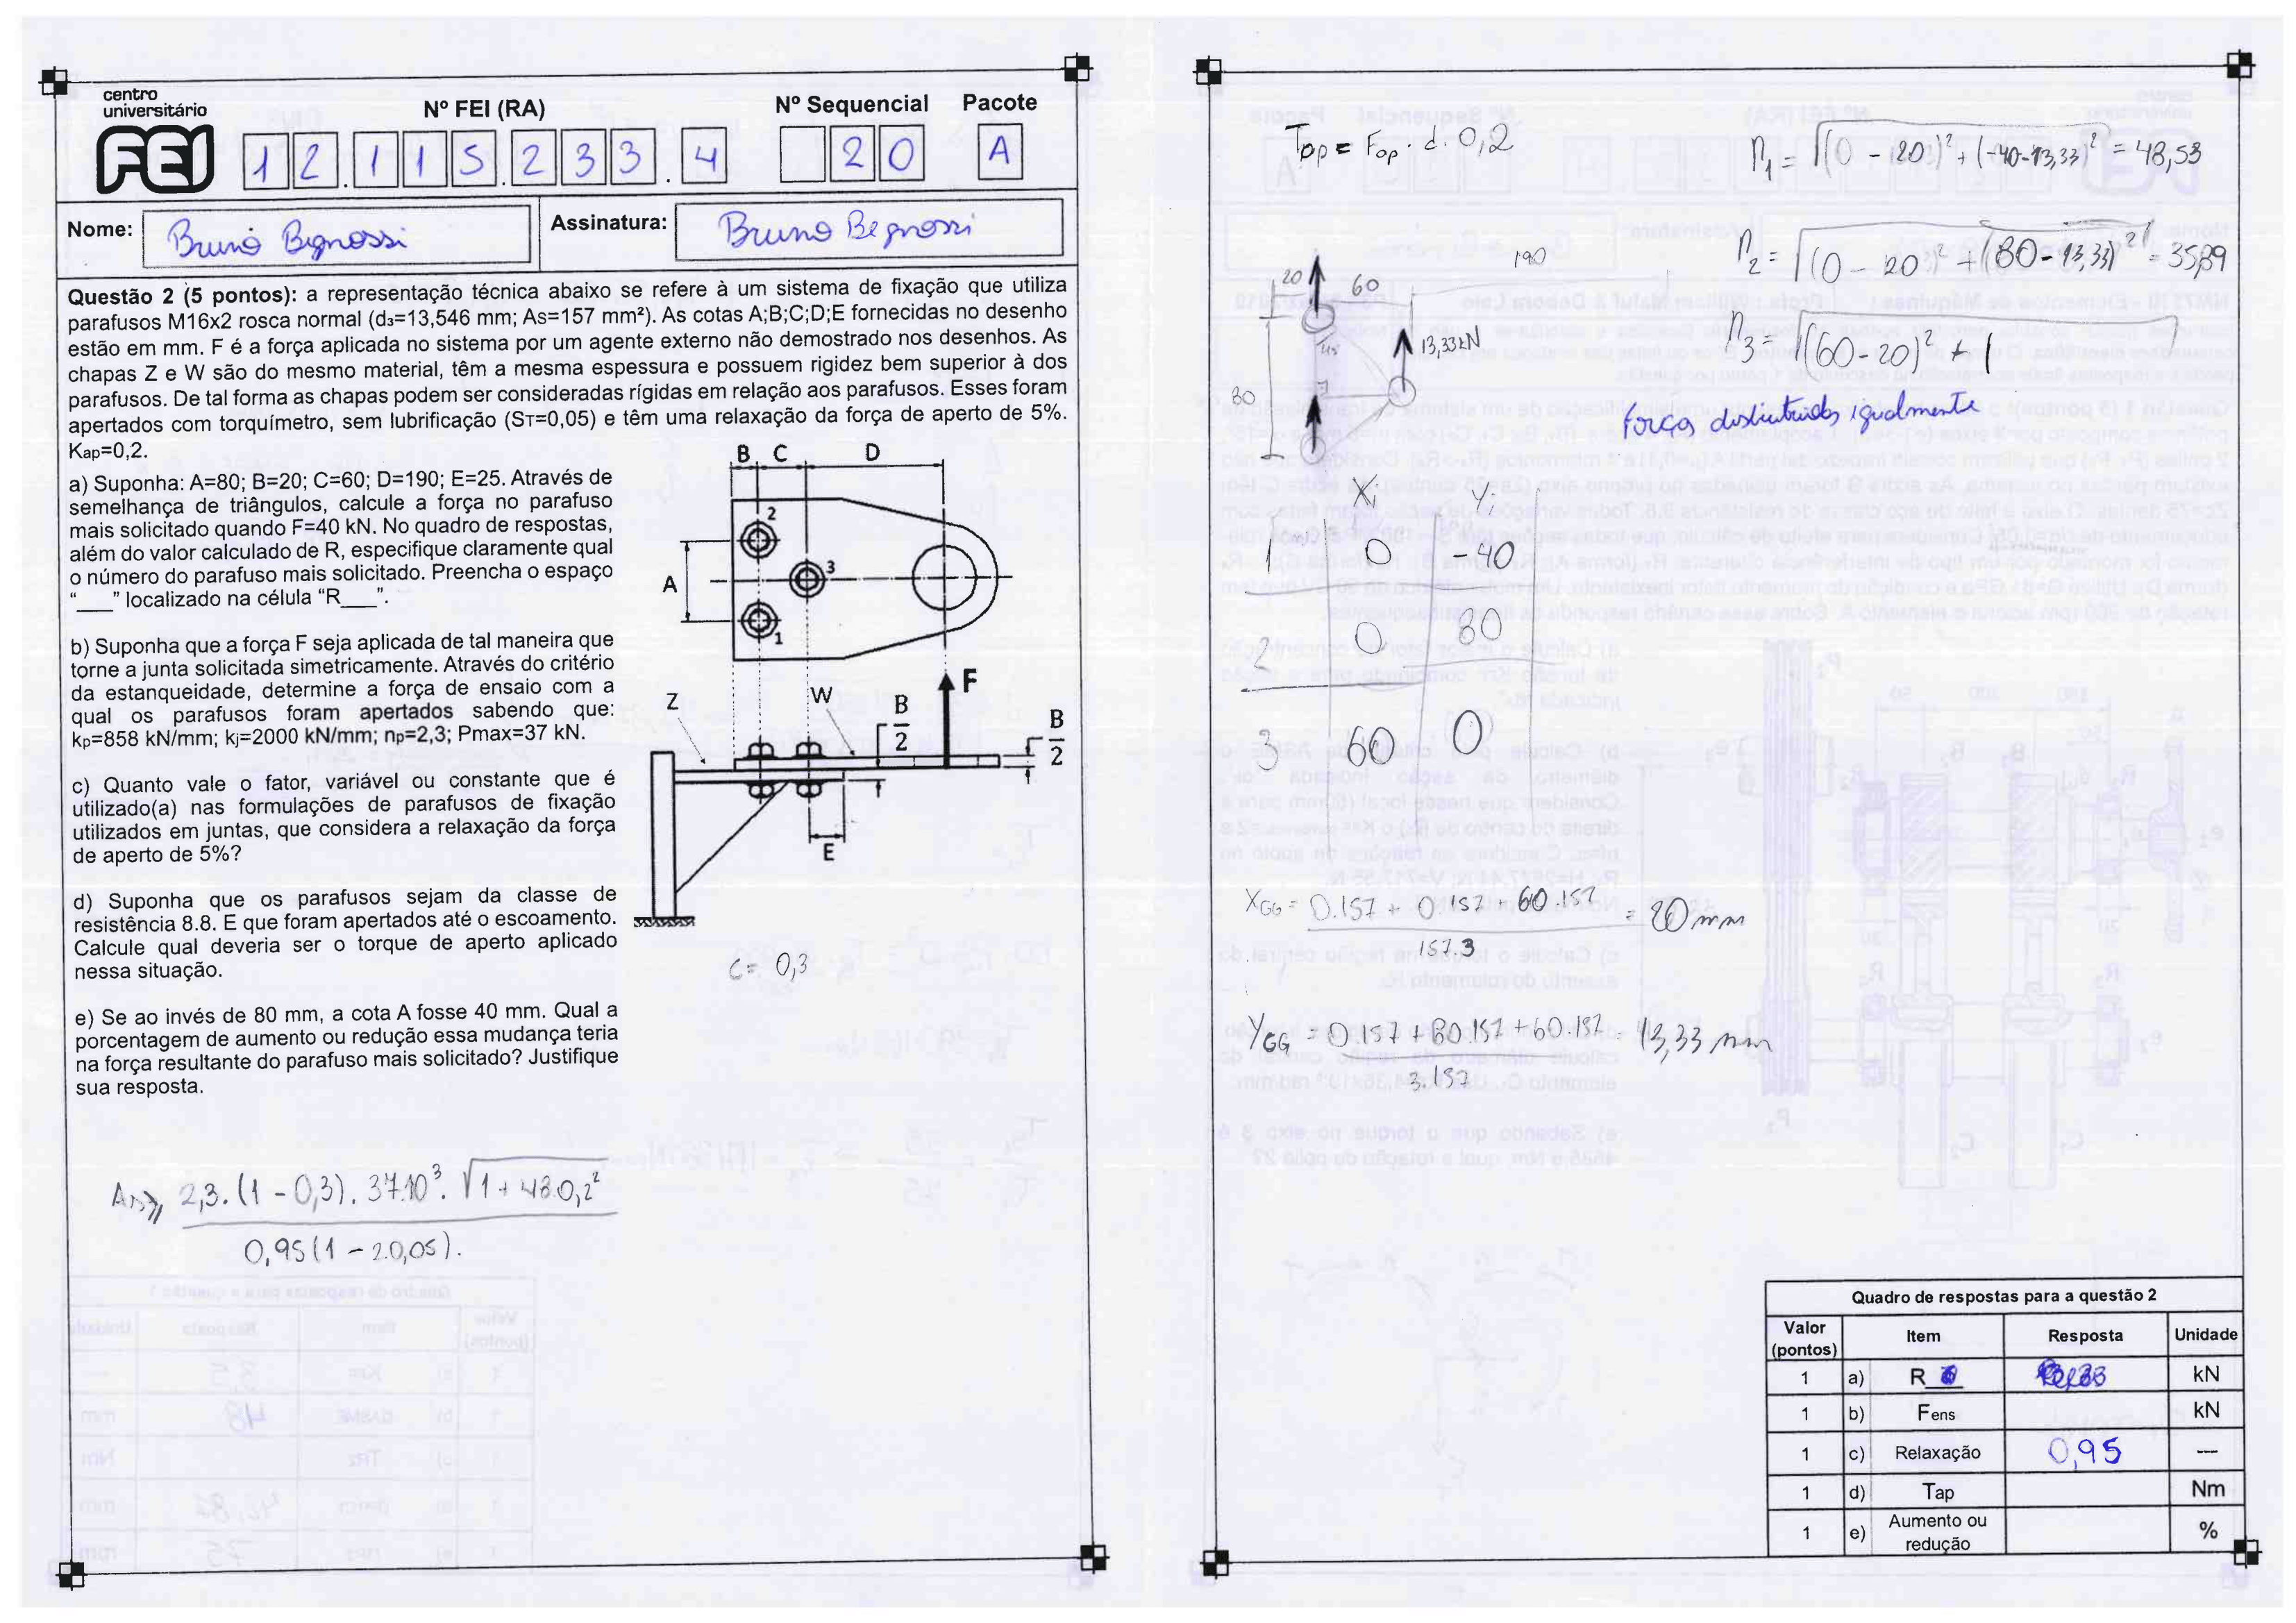 centro
universitário
FEI
Nº FEI (RA)
Nº Sequencial
Pacote
12.115.233.4
20
A
Nome:
Bruno Begnossi
Assinatura:
Bruno Begnossi
Questão 2 (5 pontos): a representação técnica abaixo se refere à um sistema de fixação que utiliza
parafusos M16x2 rosca normal (d₃=13,546 mm; As=157 mm²). As cotas A;B;C;D;E fornecidas no desenho
estão em mm. F é a força aplicada no sistema por um agente externo não demostrado nos desenhos. As
chapas Z e W são do mesmo material, têm a mesma espessura e possuem rigidez bem superior à dos
parafusos. De tal forma as chapas podem ser consideradas rígidas em relação aos parafusos. Esses foram
apertados com torquímetro, sem lubrificação (ST=0,05) e têm uma relaxação da força de aperto de 5%.
Kap=0,2.
a) Suponha: A=80; B=20; C=60; D=190; E=25. Através de
semelhança de triângulos, calcule a força no parafuso
mais solicitado quando F=40 kN. No quadro de respostas,
além do valor calculado de R, especifique claramente qual
o número do parafuso mais solicitado. Preencha o espaço
“___” localizado na célula “R___”.
b) Suponha que a força F seja aplicada de tal maneira que
torne a junta solicitada simetricamente. Através do critério
da estanqueidade, determine a força de ensaio com a
qual os parafusos foram apertados sabendo que:
kp=858 kN/mm; kj=2000 kN/mm; np=2,3; Pmax=37 kN.
c) Quanto vale o fator, variável ou constante que é
utilizado(a) nas formulações de parafusos de fixação
utilizados em juntas, que considera a relaxação da força
de aperto de 5%?
d) Suponha que os parafusos sejam da classe de
resistência 8.8. E que foram apertados até o escoamento.
Calcule qual deveria ser o torque de aperto aplicado
nessa situação.
e) Se ao invés de 80 mm, a cota A fosse 40 mm. Qual a
porcentagem de aumento ou redução essa mudança teria
na força resultante do parafuso mais solicitado? Justifique
sua resposta.
B C D
2
3
A
1
F
Z
W
B/2
B/2
E
C= 0,3
As ⩾ 2,3.(1 - 0,3). 37.10³. √1 + 48.0,2²
0,95(1 - 2.0,05).
Top = Fop . d. 0,2
n₁ = √(0 - 20)² + (-40-13,33)² = 48,53
n₂ = √(0 - 20)² + (80-13,33)² = 35,89
n₃ = √(60-20)² + (
20
60
190
13,33kN
80
força distribuída igualmente
Xi Yi
1 0 -40
2 0 80
3 60 0
XGG = 0.157 + 0.157 + 60.157 = 20 mm
157.3
YGG = 0.157 + 80.157 + 60.157 = 13,33 mm
3.157
Quadro de respostas para a questão 2
Valor (pontos) Item Resposta Unidade
1 a) R kN
1 b) Fens kN
1 c) Relaxação 0,95 ---
1 d) Tap Nm
1 e) Aumento ou redução %